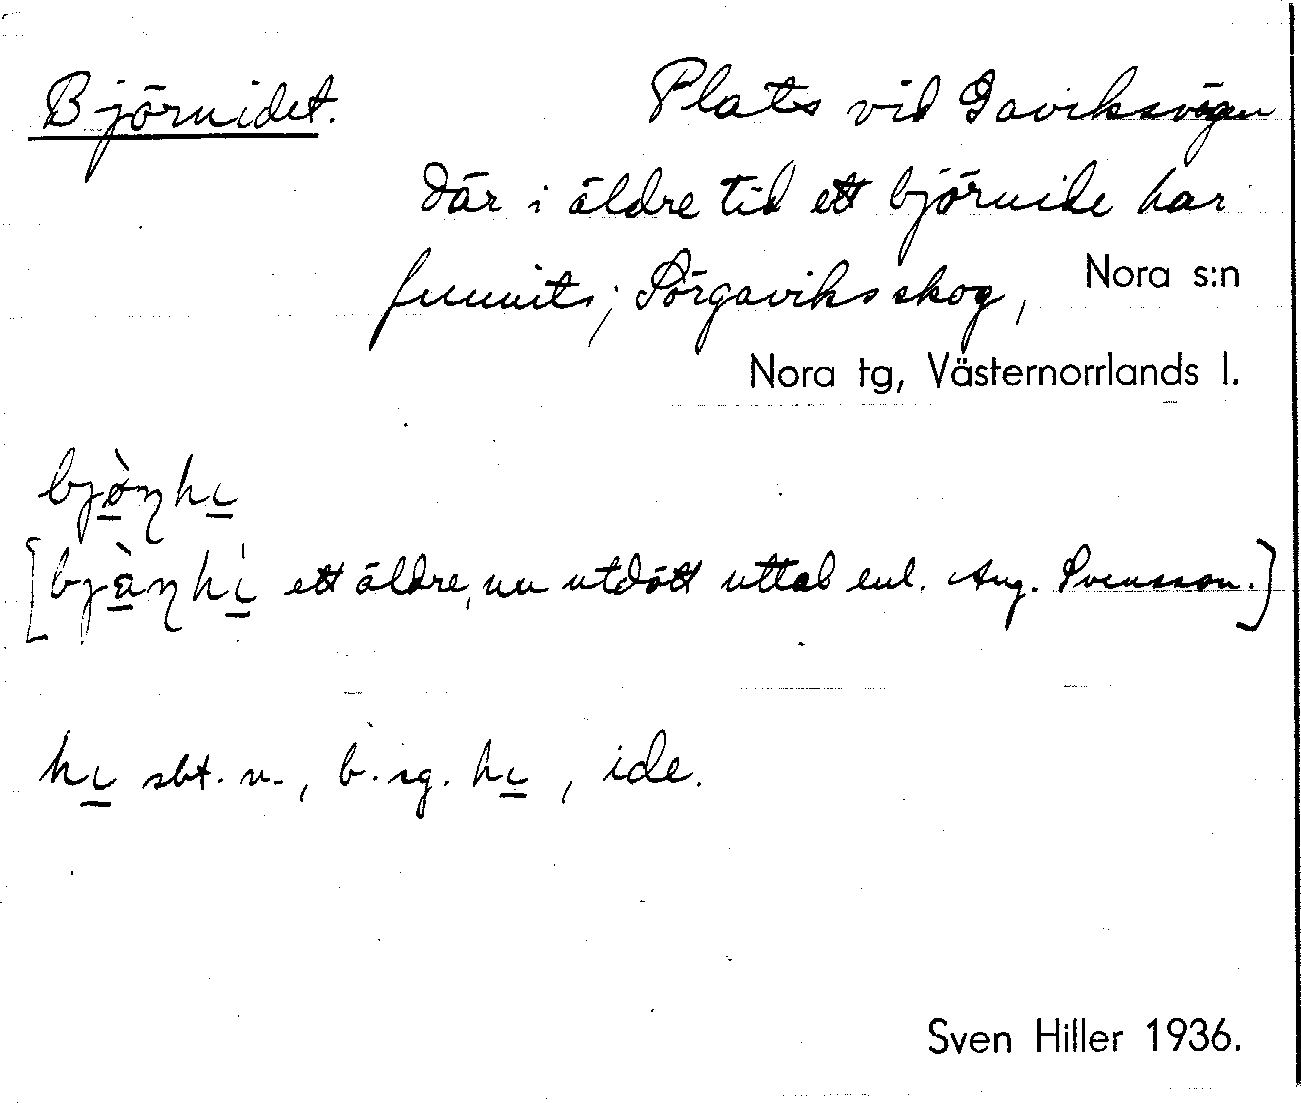 Björnidet. Plats vid Gaviksvägen
där i äldre tid ett björnide har
funnits; Sörgaviks skog, Nora s:n
Nora tg, Västernorrlands l.
bjø̀ɳhi
[bjànhi ett äldre, nu utdött uttal enl. Aug. Svensson.]
hi sbt. n., b. sg. hi, ide.
Sven Hiller 1936.